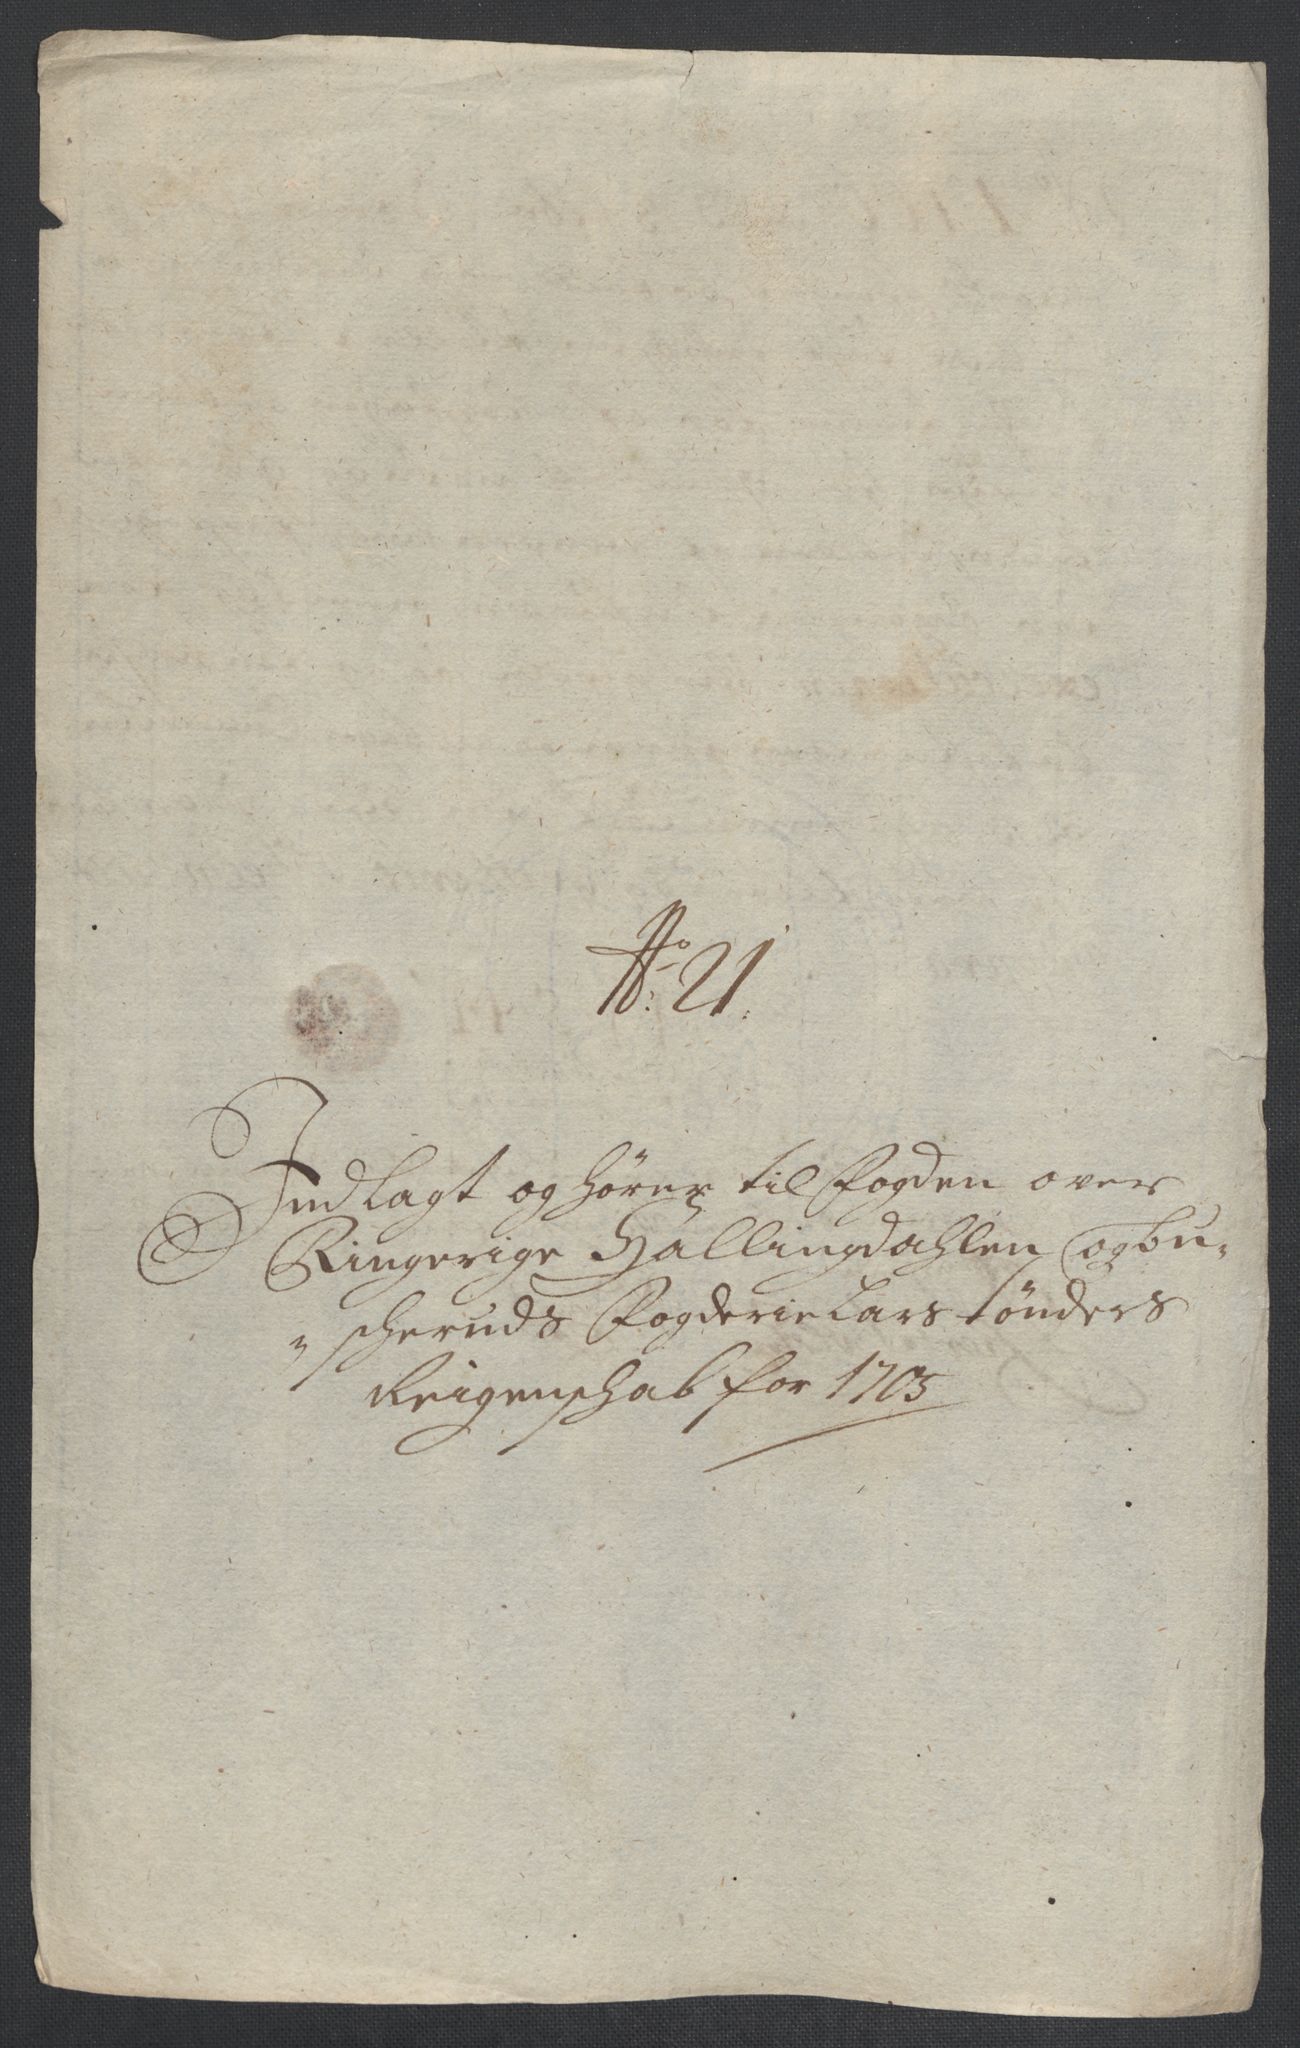 No. 21.
Indlagt og hører til Fogden over
Ringerige Hallingdahlen og bu-
scheruds Fogderie Lars tønders
Reigenschab for 1705